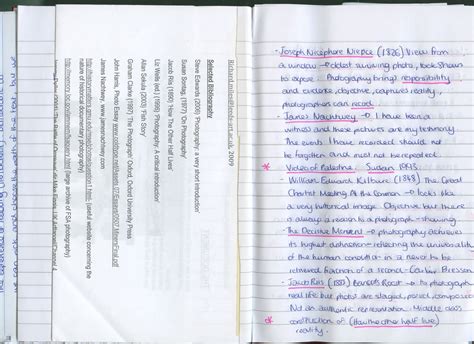 Richard.miles@leeds-art.ac.uk 2009
Selected Bibliography
Steve Edwards (2006) 'Photography: a very short introduction'
Susan Sontag (1977) 'On Photography'
Jacob Riis (1890) 'How The Other Half Lives'
Liz Wells (ed.) (1996) 'Photography: A critical introduction'
Allan Sekula (2003) 'Fish Story'
Graham Clarke (1997) 'The Photograph', Oxford, Oxford University Press
John Harris, Photo Essay
James Nachtwey, www.jamesnachtwey.com
(useful website concerning the
nature of historical documentary photography)
(large archive of FSA
photography)
- Joseph Nicephore Niepce (1826) View from
a window → oldest surviving photo, took 8hours
to expose. Photography brings responsibility
and evidence, objective, captures reality,
photographers can record.
- James Nachtwey → I have been a
witness and these pictures are my testimony.
The events I have recorded should not
be forgotten and must not be repeated.
* Sudan 1993.
- William Edward Kilburn (1848) The Great
Chartist Meeting At The Common → looks like
a very historical image. Objective but there
is always a reason to a photograph - showing
- The Decisive Moment → photography achieves
its highest distinction - reflecting the universality
of the human condition in a never to be
retrieved fraction of a second - Cartier Bresson
- Jacob Riis (1888) Bandits Roost → to photograph
real life but photos are staged, posed, composed
Not an authentic representation. Middle class
* construction of (How the other half live)
reality.